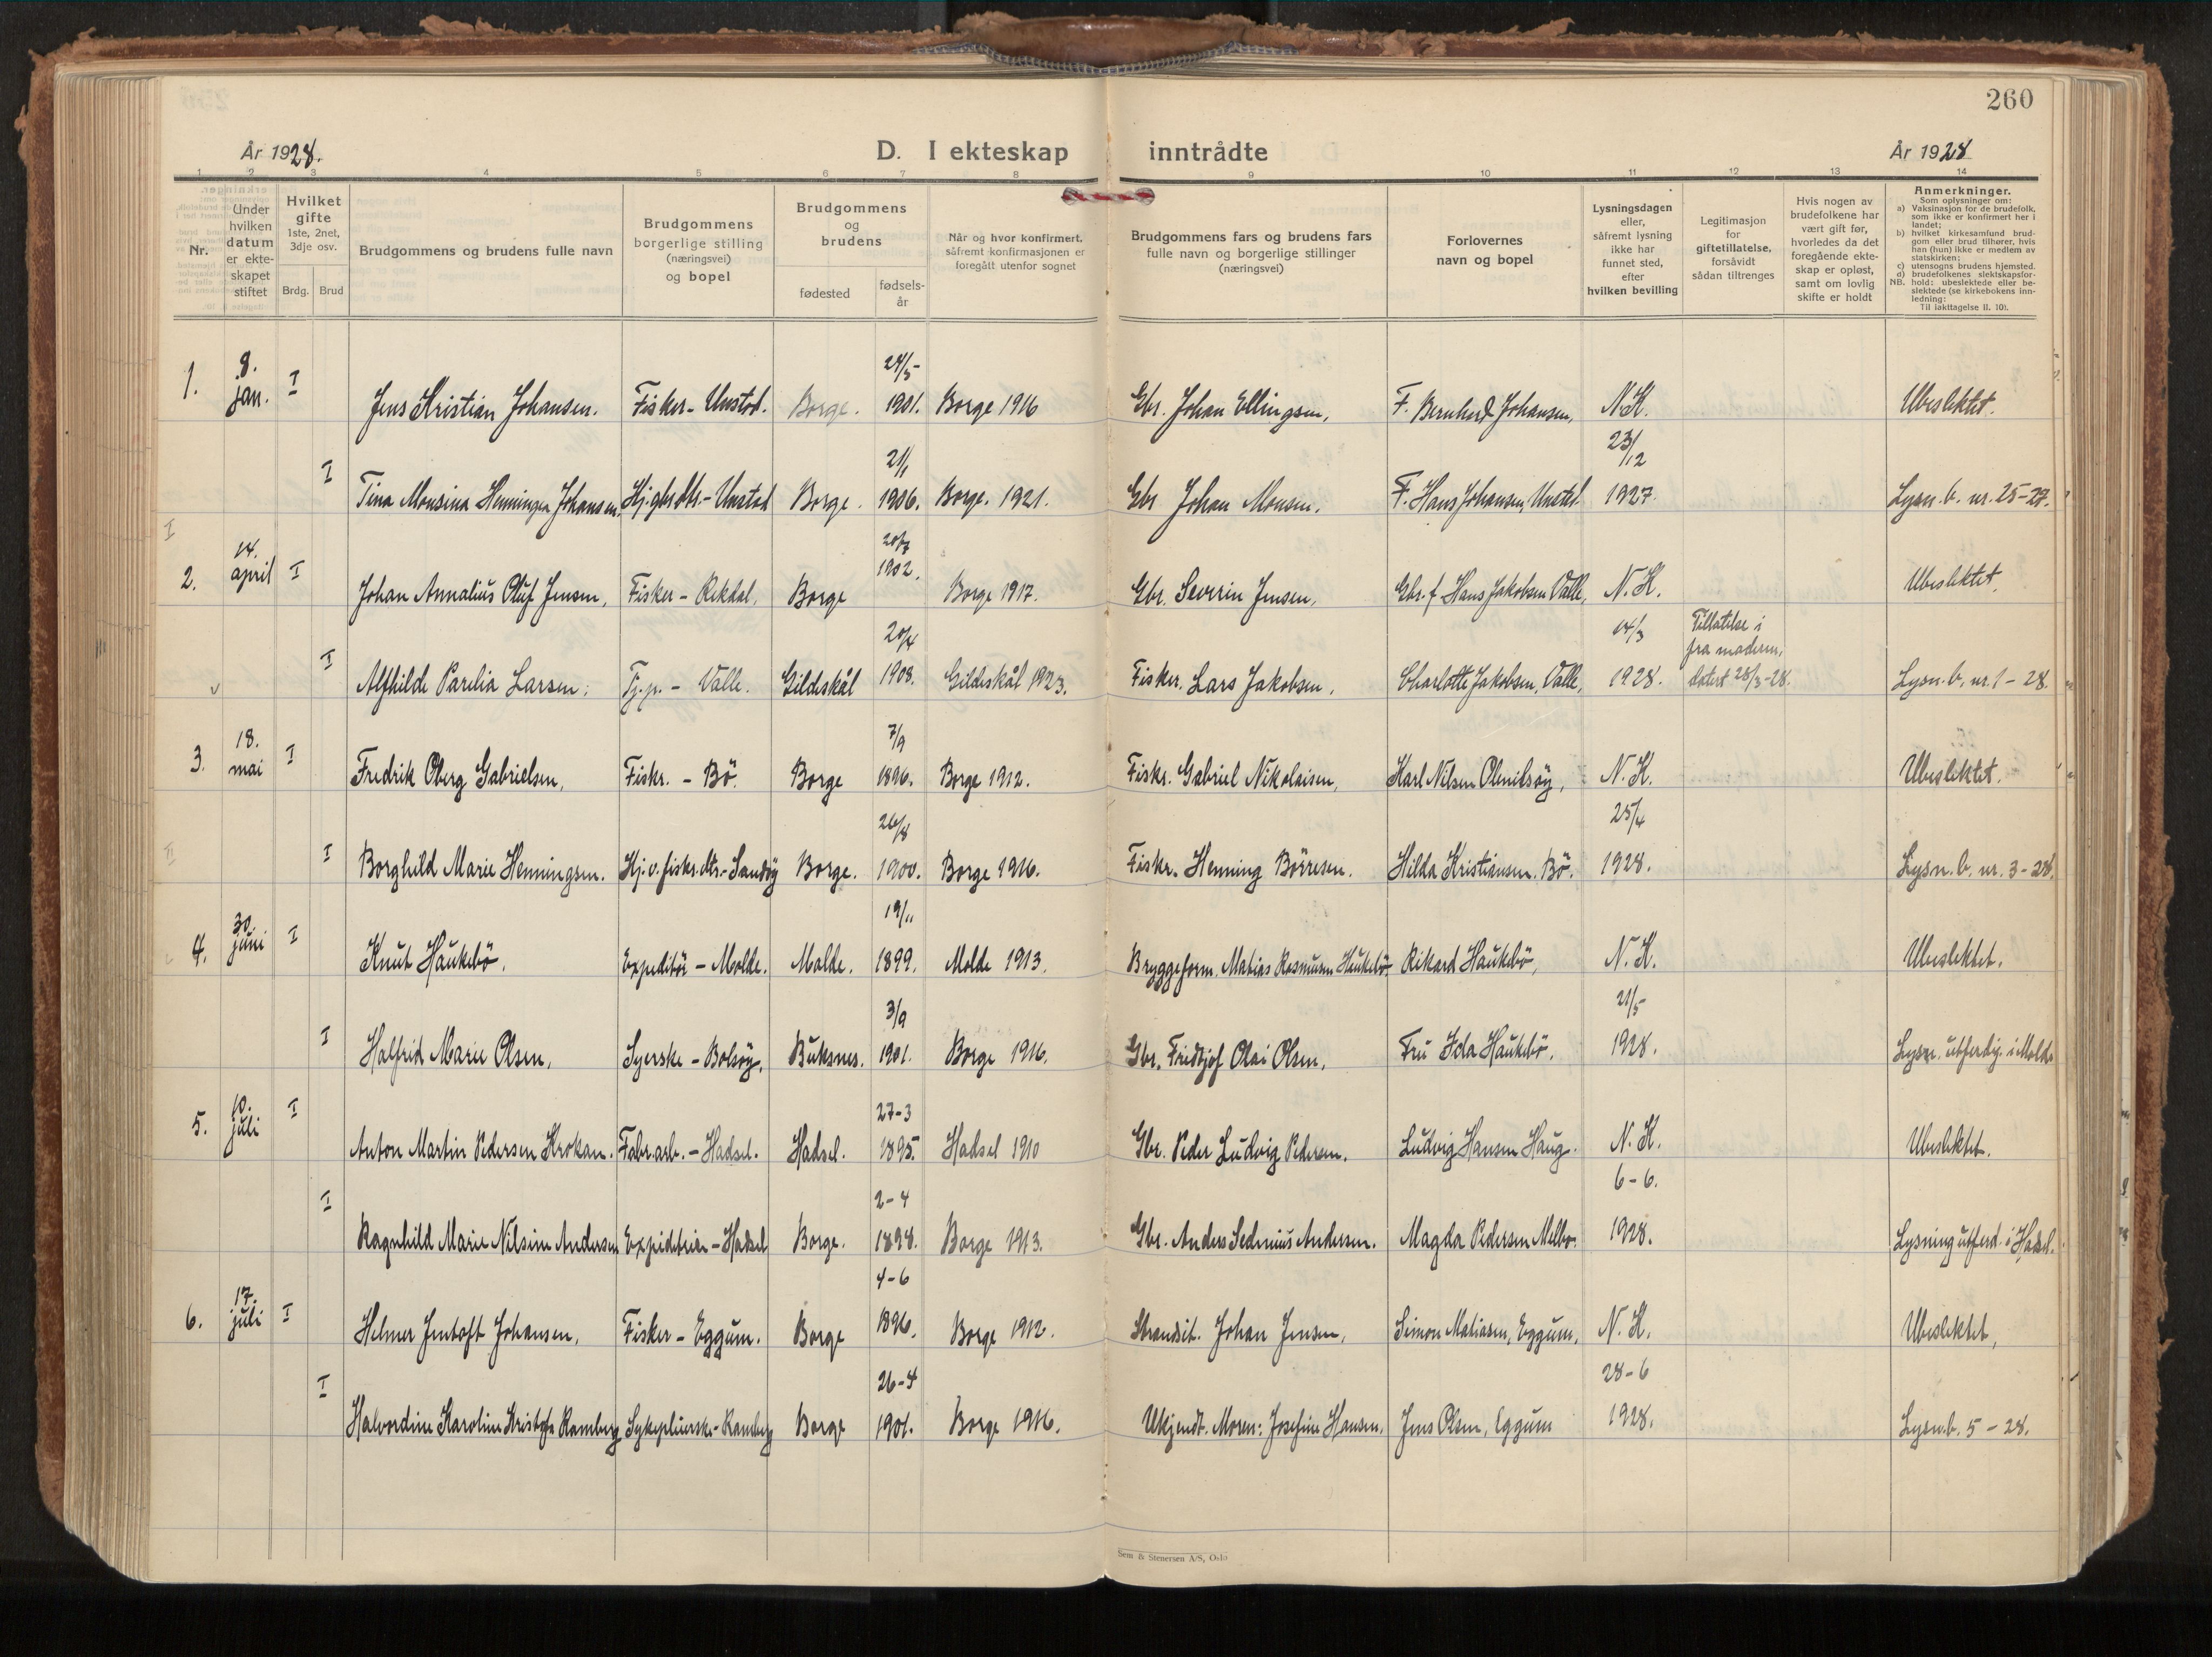 260
År 1928.
D. I ekteskap inntrådte
År 1928
1 2 3 4 5 6 7 8 9 10 11 12 13 14
Nr.
Under hvilken datum er ekteskapet stiftet
Hvilket gifte 1ste, 2net, 3dje osv.
Brdg. Brud
Brudgommens og brudens fulle navn
Brudgommens borgerlige stilling (næringsvei) og bopel
Brudgommens og brudens
fødested
fødselsår
Når og hvor konfirmert, såfremt konfirmasjonen er foregått utenfor sognet
Brudgommens fars og brudens fars fulle navn og borgerlige stillinger (næringsvei)
Forlovernes navn og bopel
Lysningsdagen eller, såfremt lysning ikke har funnet sted, efter hvilken bevilling
Legitimasjon for giftetillatelse, forsåvidt sådan tiltrenges
Hvis nogen av brudefolkene har vært gift før, hvorledes da det foregående ekteskap er opløst, samt om lovlig skifte er holdt
Anmerkninger.
Som oplysninger om:
a) Vaksinasjon for de brudefolk, som ikke er konfirmert her i landet;
b) hvilket kirkesamfund brudgom eller brud tilhører, hvis han (hun) ikke er medlem av statskirken;
c) utensogns brudens hjemsted.
d) brudefolkenes slektskapsforhold: ubeslektede eller beslektede (se kirkebokens innledning:
NB.
Til iakttagelse II. 10).
1. 8. jan. I Jens Kristian Johansen. Fisker - Unstad. Borge. 24/5 1901. Borge 1916 Gbr. Johan Ellingsen, F. Bernhard Johansen, N.K. Ubeslektet.
I Tina Monsina Henningen Johansen. Hj. gbr.dtr. - Unstad Borge. 21/1 1906. Borge. 1921. Gbr Johan Monsen. F. Hans Johansen, Unstad 23/12 1927. Lysn. b. nr. 25-27.
I
2. 14. april I Johan Annalius Oluf Jensen, Fisker - Rekdal, Borge 20/7 1902. Borge 1917. Gbr. Severin Jensen, Gbr. f Hans Jakobsen Valle, N.K. Ubeslektet.
I Alfhilde Parelia Larsen. Tj.p. - Valle. Gildeskål 20/4 1908. Gildeskål 1923. Fisker. Lars Jakobsen. Charlotte Jakobsen, Valle, 14/3 1928. Tillatelse i fra moderen, datert 28/3-28. Lysn. b. nr. 1 - 28.
3. 18. mai I Fredrik Oberg Gabrielsen, Fiskr. - Bö. Borge 7/9 1896. Borge 1912. Fiskr. Gabriel Nikolaisen, Karl Nilsen N.K. Ubeslektet.
II
I Borghild Marie Henningsen. Hj.v. fiskr.dtr. - Sandöy Borge. 26/8 1900. Borge 1916. Fiskr. Henning Börresen. Hilda Kristiansen. Bö. 25/4 1928. Lysn. b. nr. 3-28.
4. 30. juni I Knut Haukebö. Expeditör - Molde. Molde. 19/11 1899. Molde 1913. Bryggeform. Matias Rasmusen Haukebö. Rikard Haukebö, N.K. Ubeslektet.
I Halfrid Marie Olsen, Syerske - Bolsöy. Buksnes. 3/9 1901. Borge 1916. Gbr. Fridtjof Olai Olsen. Fru Ida Haukebö. 21/5 1928. Lysn. utferdig. i Molde
5. 10. juli I Anton Martin Pedersen Krokan. Fabr.arb. - Hadsel. Hadsel. 27-3 1895. Hadsel 1910 Gbr. Peder Ludvig Pedersen. Ludvig Hansen Haug. N.K. Ubeslektet.
I Ragnhild Marie Nilsine Andersen Expiditrise - Hadsel Borge. 2-4 1898. Borge 1913. Gbr. Anders Sedenius Andersen. Magda Pedersen Melbo. 6-6. 1928. Lysning utferd. i Hadsel.
6. 17. juli I Helmer Jentoft Johansen, Fisker - Eggum. Borge 4-6 1896. Borge 1912. Strandsit. Johan Jensen, Simon Matiasen, Eggum, N.K. Ubeslektet,
I Halvordine Karoline Kristofa Ramberg Sykepleierske - Ramberg Borge 26-4 1901. Borge 1916. Ukjendt. Moren: Josefine Hansen, Jens Olsen, Eggum 28-6 1928. Lysn. b. 5 - 28.
Sem & Stenersen A/S, Oslo